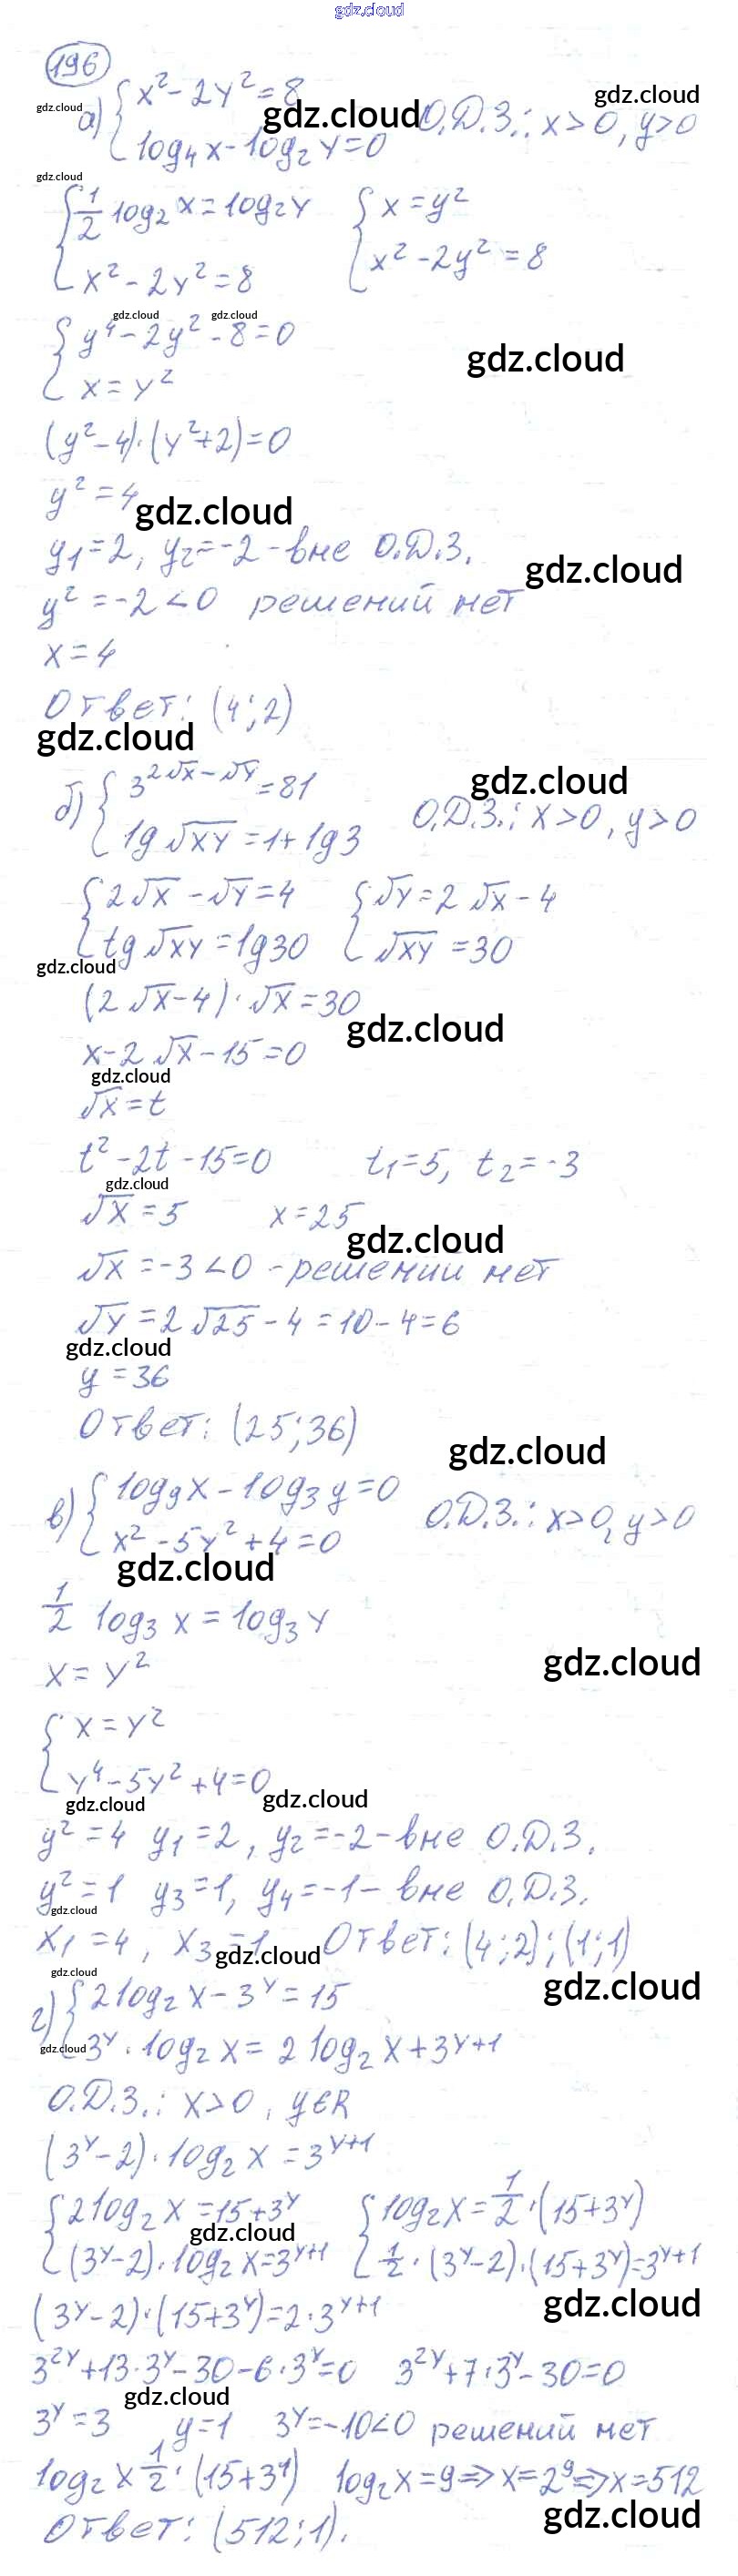 gdz.cloud
196
gdz.cloud
а) { x² - 2y² = 8
log₄x - log₂y = 0
gdz.cloud
О.Д.З.: x > 0, y > 0
gdz.cloud
gdz.cloud
{ 1/2 log₂x = log₂y { x = y²
x² - 2y² = 8 x² - 2y² = 8
gdz.cloud gdz.cloud
{ y⁴ - 2y² - 8 = 0
x = y²
gdz.cloud
(y² - 4)·(y² + 2) = 0
y² = 4
gdz.cloud
y₁ = 2, y₂ = -2 - вне О.Д.З.
gdz.cloud
y² = -2 < 0 решений нет
x = 4
Ответ: (4; 2)
gdz.cloud
б) { 3^(2√x - √y) = 81
lg √xy = 1 + lg3
gdz.cloud
О.Д.З.: x > 0, y > 0
{ 2√x - √y = 4 { √y = 2√x - 4
tg √xy = lg30 √xy = 30
gdz.cloud
(2√x - 4)·√x = 30
gdz.cloud
x - 2√x - 15 = 0
gdz.cloud
√x = t
t² - 2t - 15 = 0 t₁ = 5, t₂ = -3
gdz.cloud
√x = 5 x = 25
gdz.cloud
√x = -3 < 0 - решении нет
√y = 2√25 - 4 = 10 - 4 = 6
gdz.cloud
y = 36
Ответ: (25; 36)
gdz.cloud
в) { log₉x - log₃y = 0
x² - 5y² + 4 = 0
О.Д.З.: x > 0, y > 0
gdz.cloud
1/2 log₃x = log₃y
gdz.cloud
x = y²
{ x = y²
y⁴ - 5y² + 4 = 0
gdz.cloud gdz.cloud
y² = 4 y₁ = 2, y₂ = -2 - вне О.Д.З.
y² = 1 y₃ = 1, y₄ = -1 - вне О.Д.З.
gdz.cloud
x₁ = 4, x₃ = 1 Ответ: (4; 2); (1; 1)
gdz.cloud
gdz.cloud gdz.cloud
г) { 2log₂x - 3^y = 15
3^y · log₂x = 2log₂x + 3^(y+1)
gdz.cloud
О.Д.З.: x > 0, y∈R
(3^y - 2)·log₂x = 3^(y+1)
{ 2log₂x = 15 + 3^y { log₂x = 1/2·(15 + 3^y)
gdz.cloud
(3^y - 2)·log₂x = 3^(y+1) 1/2·(3^y - 2)·(15 + 3^y) = 3^(y+1)
gdz.cloud
(3^y - 2)·(15 + 3^y) = 2·3^(y+1)
3^(2y) + 13·3^y - 30 - 6·3^y = 0 3^(2y) + 7·3^y - 30 = 0
gdz.cloud
3^y = 3 y = 1 3^y = -10 < 0 решений нет
log₂x 1/2·(15 + 3¹) log₂x = 9 => x = 2⁹ => x = 512
gdz.cloud
Ответ: (512; 1).